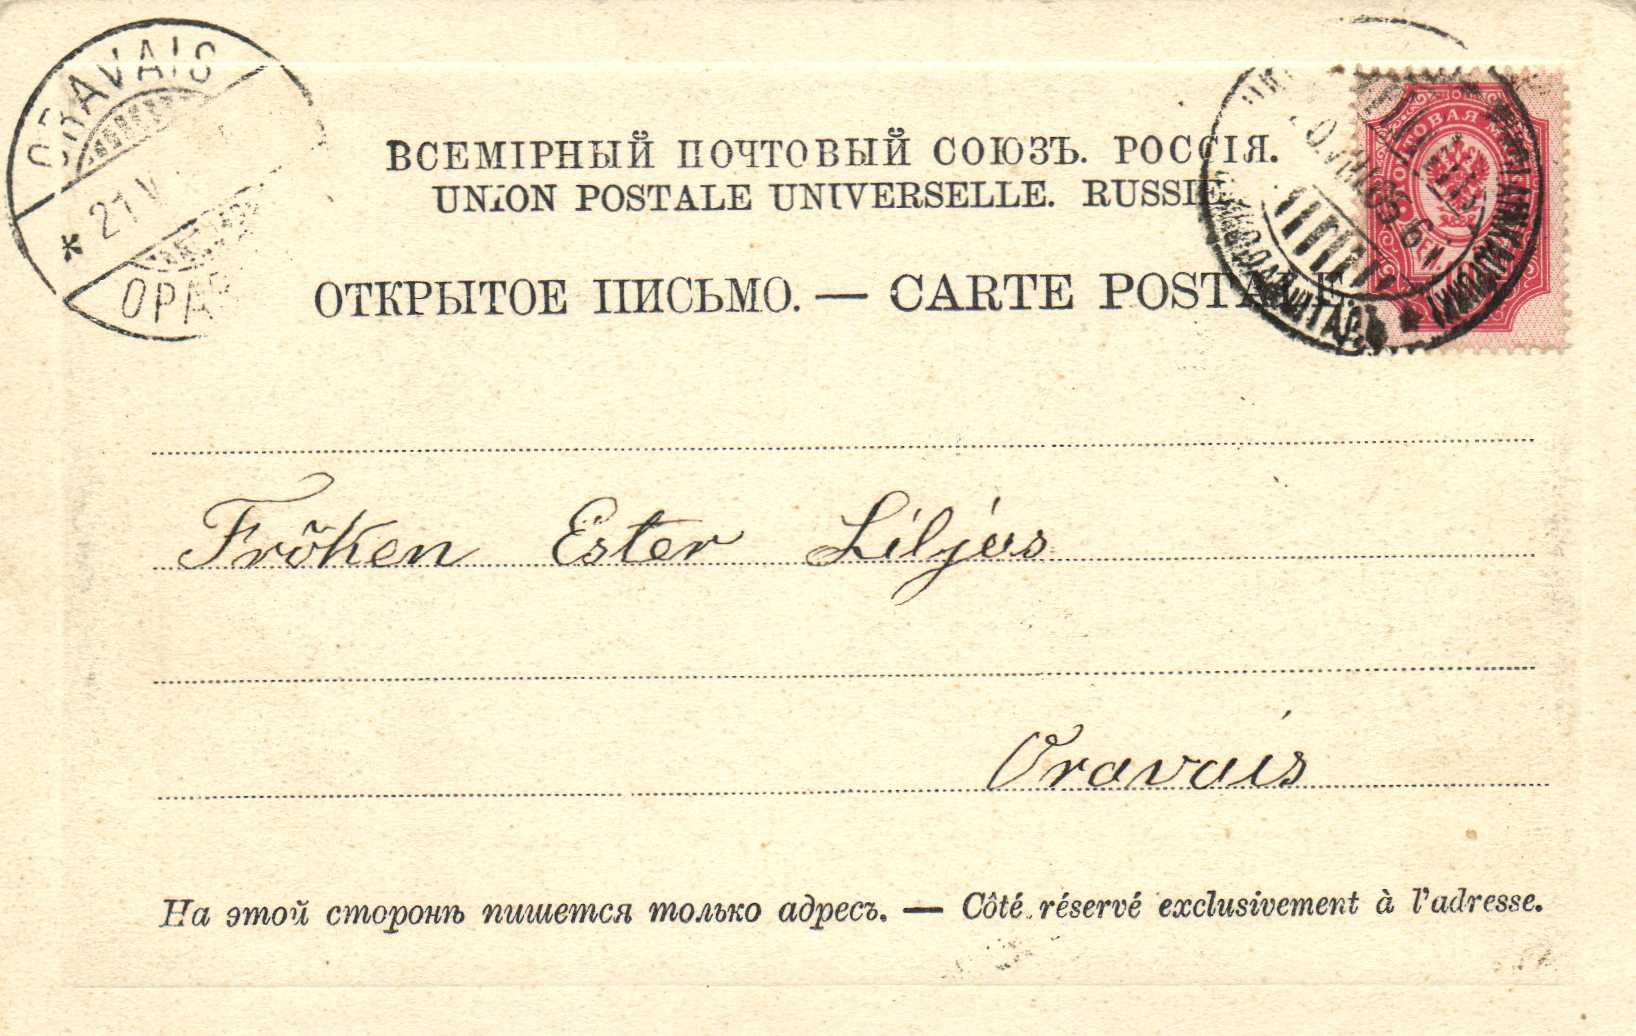 ORAVAIS
* 21 V
ОРА
ВСЕМІРНЫЙ ПОЧТОВЫЙ СОЮЗЪ. РОССІЯ.
UNION POSTALE UNIVERSELLE. RUSSIE.
ОТКРЫТОЕ ПИСЬМО. — CARTE POSTALE.
Fröken Ester Liljás
Oravais
На этой сторонѣ пишется только адресъ. — Côté réservé exclusivement à l'adresse.